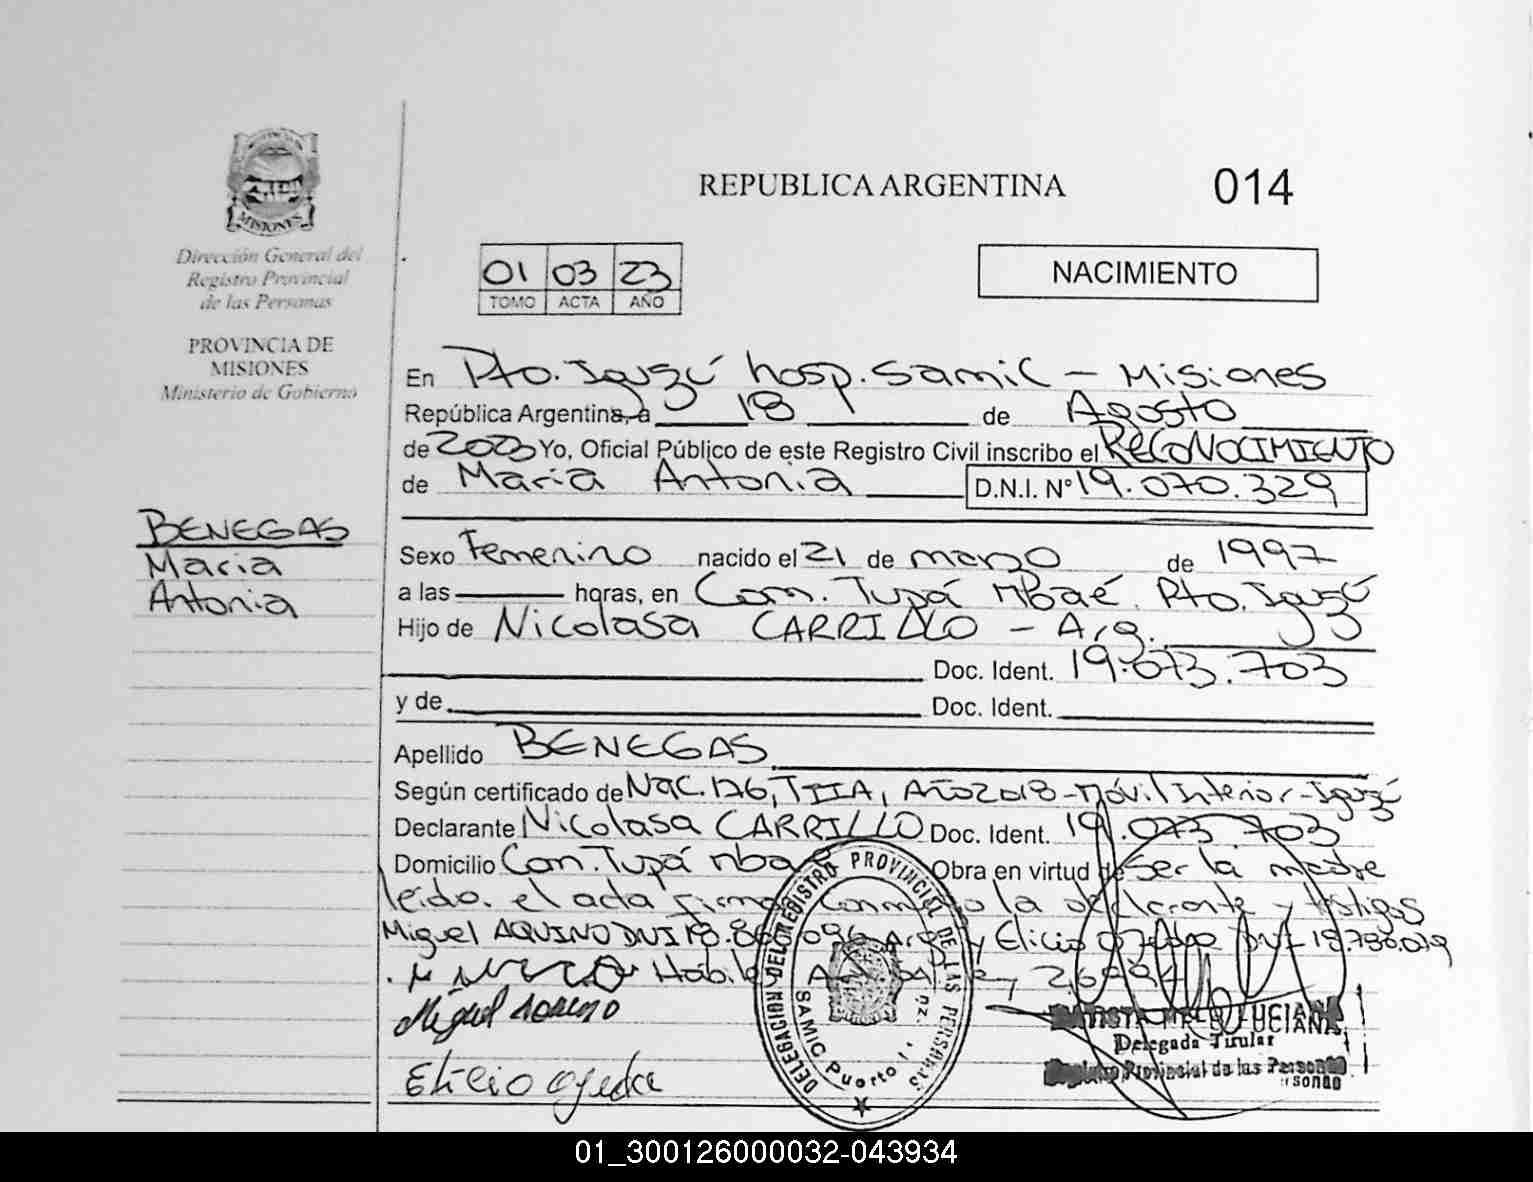 REPUBLICA ARGENTINA
014
MISIONES
Dirección General del
Registro Provincial
de las Personas
PROVINCIA DE
MISIONES
Ministerio de Gobierno
01 03 23
TOMO ACTA AÑO
NACIMIENTO
En Pto. Iguzú hosp. Samic - Misiones
República Argentina, a 18 de Agosto
de 2023 Yo, Oficial Público de este Registro Civil inscribo el RECONOCIMIENTO
de Maria Antonia D.N.I. N° 19.070.329
BENEGAS
Maria
Antonia
Sexo Femenino nacido el 21 de marzo de 1997
a las horas, en Com. Tupá Mbaé. Pto. Iguzú
Hijo de Nicolasa CARRILLO - Arg.
Doc. Ident. 19.073.703
y de Doc. Ident.
Apellido BENEGAS
Según certificado de Nac. 126, TIIA, AÑO 2018 - Móvil Interior - Iguzú
Declarante Nicolasa CARRILLO Doc. Ident. 19.073.703
Domicilio Com. Tupá mbaé Obra en virtud de Ser la madre
leido. el acta firma conmigo la declarante y testigos
Miguel AQUINO DNI y Elicio Ojeda DNI 18.780.019
Habil
Miguel
Elicio ojeda
DELEGACION DEL REGISTRO PROVINCIAL DE LAS PERSONAS
SAMIC Puerto
LUCIANA
Delegada Titular
Registro Provincial de las Personas
01_300126000032-043934